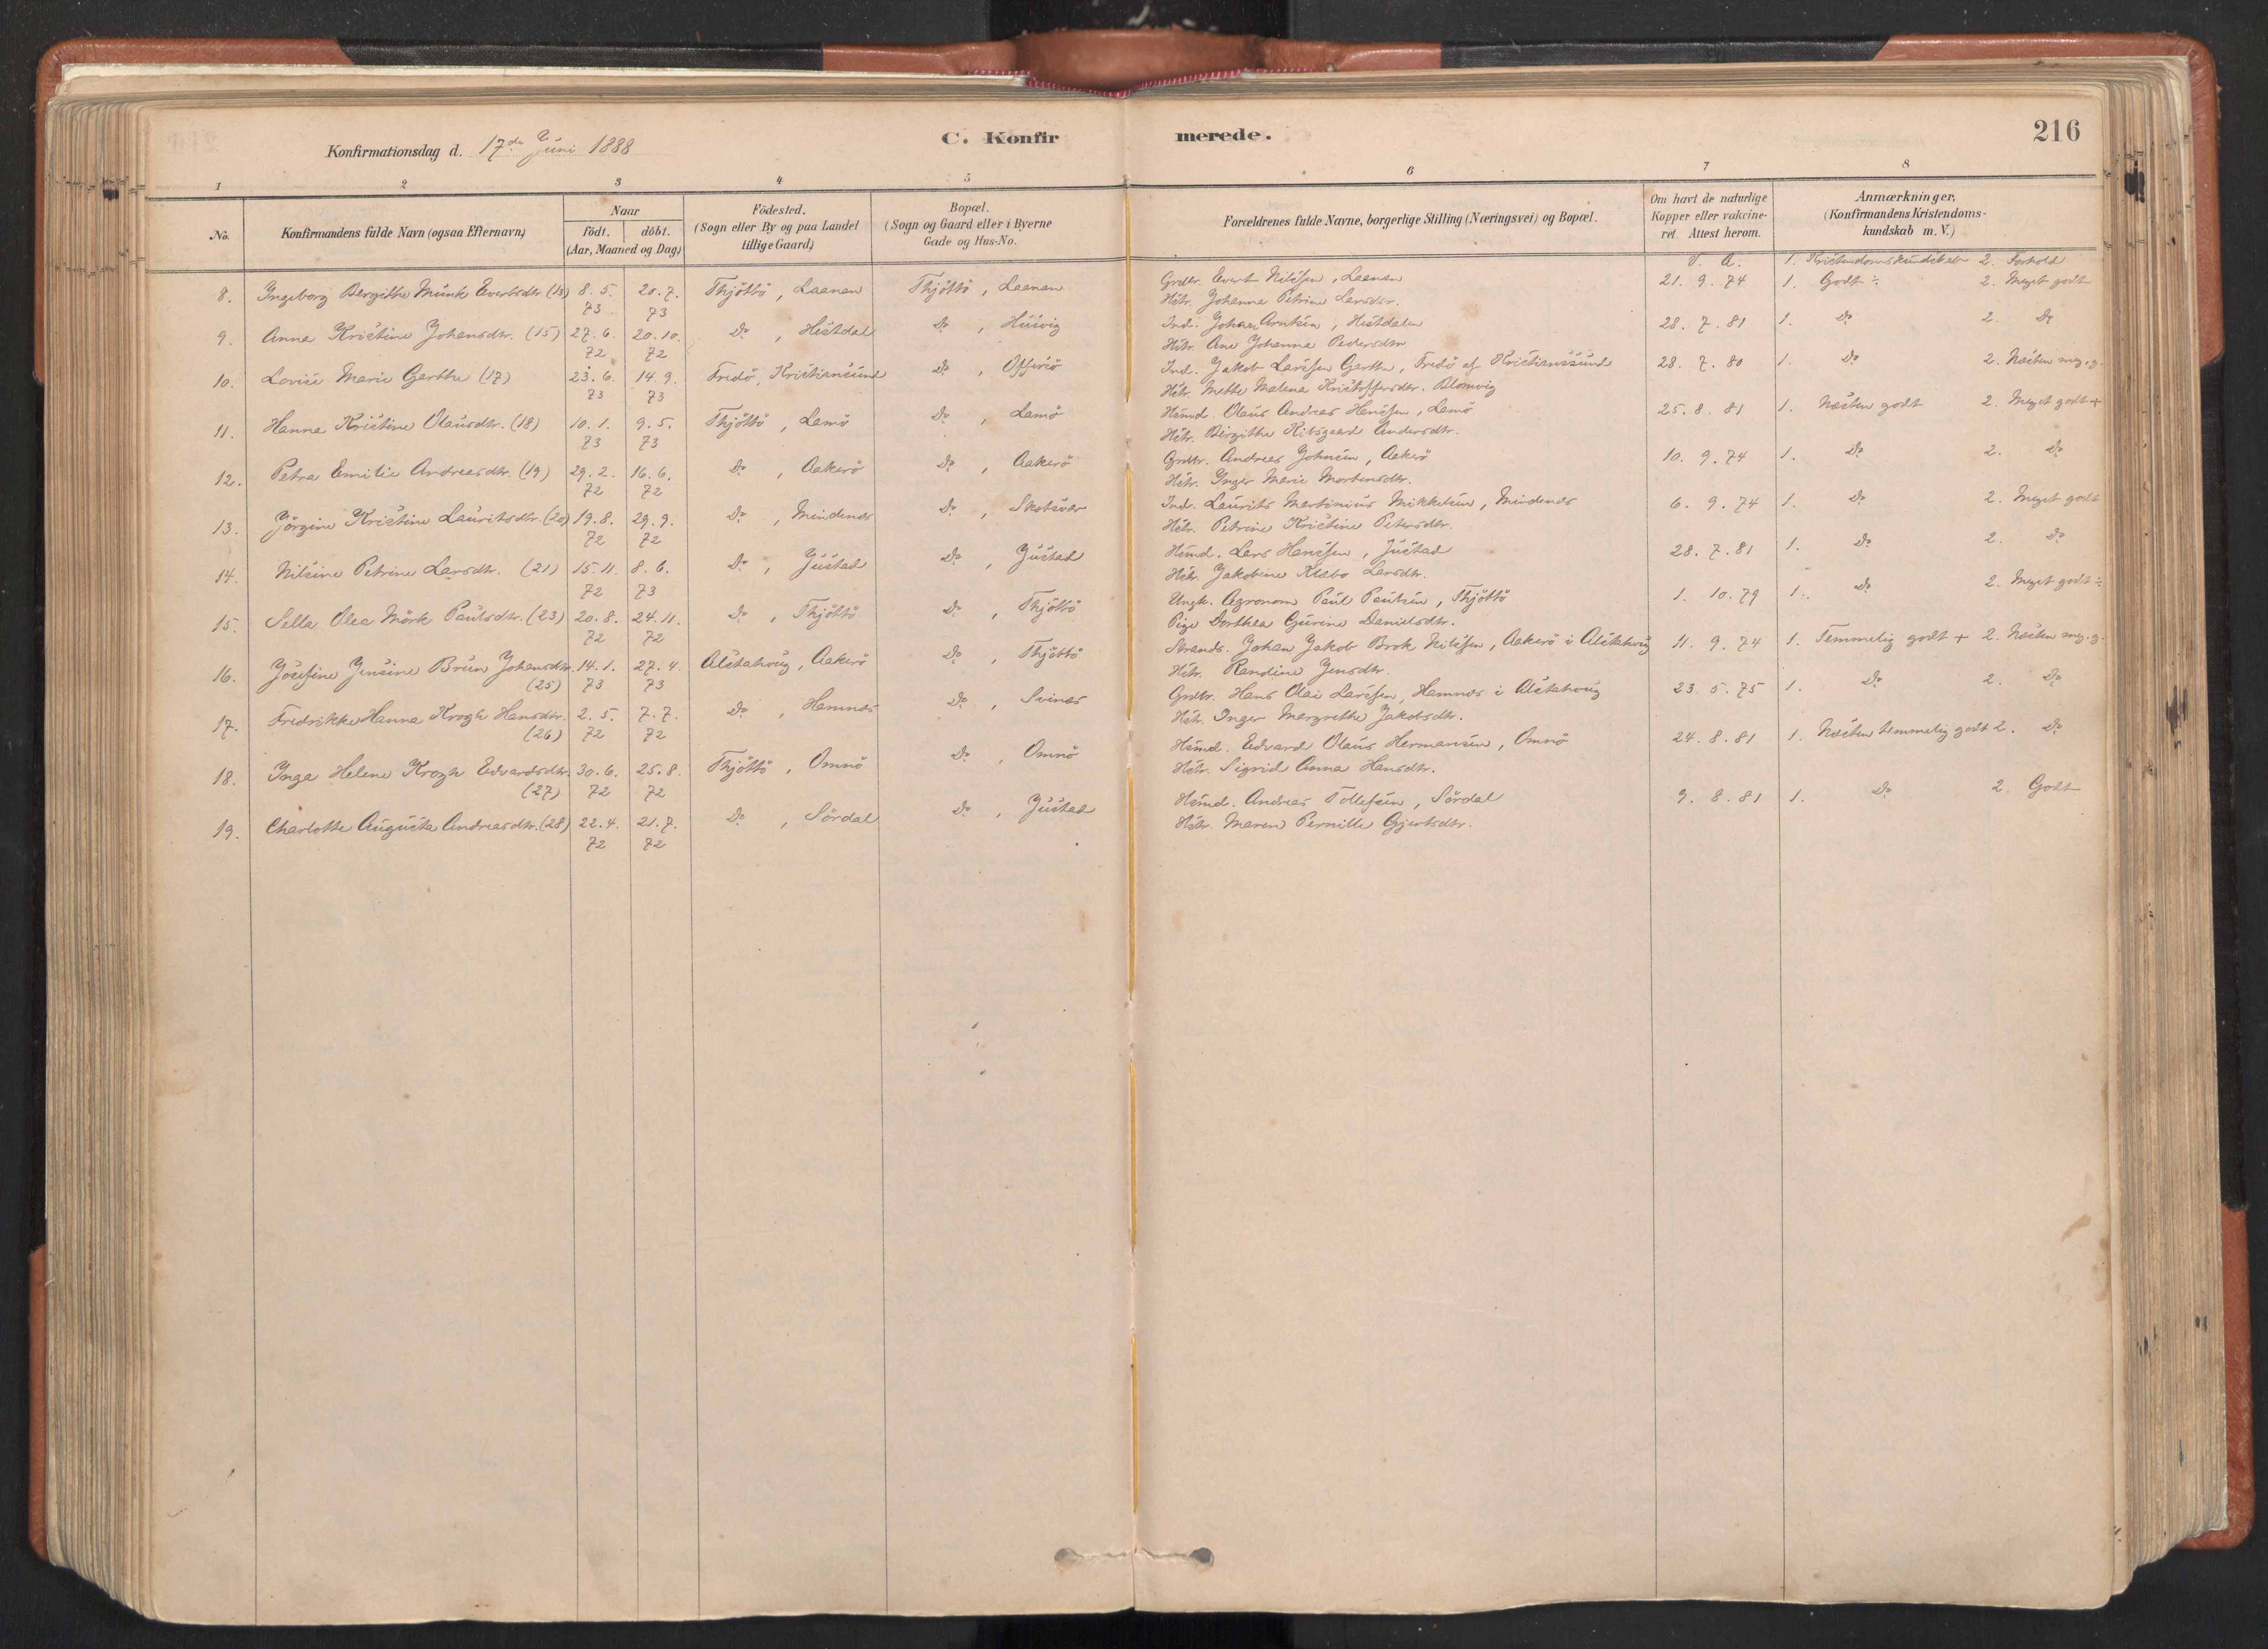 216
Konfirmationsdag d. 17de Juni 1888
C. Konfir merede.
1 2 3 4 5 6 7 8
No. Konfirmandens fulde Navn (ogsaa Efternavn) Naar födt. döbt. (Aar, Maaned og Dag) Födested. (Sogn eller By og paa Landet tillige Gaard) Bopæl. (Sogn og Gaard eller i Byerne Gade og Hus-No. Forældrenes fulde Navne, borgerlige Stilling (Næringsvei) og Bopæl. Om havt de naturlige Kopper eller vakcineret. Attest herom. Anmærkninger, (Konfirmandens Kristendomskundskab m. V.)
V. A. 1. Kristendomskundskab 2. Forhold
8. Ingeborg Bergithe Munk Evertsdtr. 8. 5. 20. 7. Thjöttö, Laanan Thjöttö, Laanan Grdbr. Evert Nilssen, Laanan 21. 9. 74 1. Godt ÷ 2. Meget godt
73 73 Hstr. Johanna Petrine Larsdtr.
9. Anna Kristine Johansdtr. (15) 27. 6. 20. 10. Do, Hestdal Do, Husvig Ind. Johan Arntsen, Hestdalen 28. 7. 81 1. Do 2. Do
72 72 Hstr. Ane Johanna Pedersdtr.
10. Lovise Marie Garthe (17) 23. 6. 14. 9. Fredö, Kristiansund Do, Offersö Ind. Jakob Larssen Garthe, Fredö af Kristianssund 28. 7. 80 1. Do 2. Næsten meg. g.
73 73 Hstr. Mette Malena Kristoffersdtr. Blomvig
11. Hanna Kristine Olausdtr. (18) 10. 1. 9. 5. Thjöttö, Lamö Do, Lamö Hsmd. Olaus Andreas Hanssen, Lamö 25. 8. 81 1. Næsten godt 2. Meget godt +
73 73 Hstr. Birgithe Andersdtr.
12. Petra Emilie Andreasdtr. (19) 29. 2. 16. 6. Do, Aakerö Do, Aakerö Grdbr. Andreas Johnsen, Aakerö 10. 9. 74 1. Do 2. Do
72 72 Hstr. Inger Marie Mortensdtr.
13. Jörgine Kristine Lauritsdtr. (20) 19. 8. 29. 9. Do, Mindenes Do, Skotsvær Ind. Laurits Martinius Mikkelsen, Mindenes 6. 9. 74 1. Do 2. Meget godt
72 72 Hstr. Petrine Kristine Petersdtr.
14. Nilsine Petrine Larsdtr. (21) 15. 11. 8. 6. Do, Justad Do, Justad Hsmd. Lars Hanssen, Justad 28. 7. 81 1. Do 2. Do
72 73 Hstr. Jakobine Klæbo Larsdtr.
15. Sella Olea Mörk Paulsdtr. (23) 20. 8. 24. 11. Do, Thjöttö Do, Thjöttö Ungk. Agronom Paul Paulsen, Thjöttö 1. 10. 79 1. Do 2. Meget godt ÷
72 72 Pige Dorthea Gurine Danielsdtr.
16. Josefine Jensine Brun Johansdtr. 14. 1. 27. 4. Alstahoug, Aakerö Do, Thjöttö Strands. Johan Jakob Brok Nilssen, Aakerö i Alstahoug 11. 9. 74 1. Temmelig godt + 2. Næsten meg. g.
(25) 73 73 Hstr. Randine Jensdtr.
17. Fredrikke Hanna Krogh Hansdtr. 2. 5. 7. 7. Do, Hamnes Do, Svinæs Grdbr. Hans Olai Larssen, Hamnes i Alstahoug 23. 5. 75 1. Do 2. Do
(26) 72 72 Hstr. Inger Margrethe Jakobsdtr.
18. Inga Helene Krogh Edvardsdtr. 30. 6. 25. 8. Thjöttö, Omnö Do, Omnö Hsmd. Edvard Olaus Hermansen, Omnö 24. 8. 81 1. Næsten temmelig godt 2. Do
(27) 72 72 Hstr. Sigrid Anna Hansdtr.
19. Charlotte Augusta Andreasdtr. (28) 22. 4. 21. 7. Do, Sördal Do, Justad Hsmd. Andreas Tollefsen, Sördal 9. 8. 81 1. Do 2. Godt
72 72 Hstr. Maren Pernille Gjertsdtr.